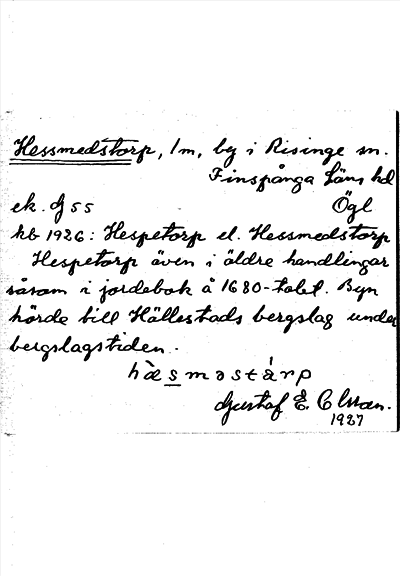 Hessmedstorp, 1m, by i Risinge sn.
Finspånga läns hd
ek. Gj 55 Ögl
kb 1926: Hespetorp el. Hessmedstorp
Hespetorp även i äldre handlingar
såsom i jordebok å 1680-talet. Byn
hörde till Hällestads bergslag under
bergslagstiden.
hæ̀sməstárp
Gustaf E. Olsson.
1927